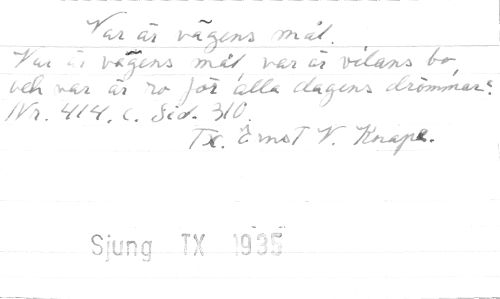 Var är vägens mål.
Var är vägens mål var är vilans bo,
och var är ro för alla dagens drömmar?
Nr. 414. c. Sid. 310.
Tx. Ernst V. Knape.
Sjung TX 1935